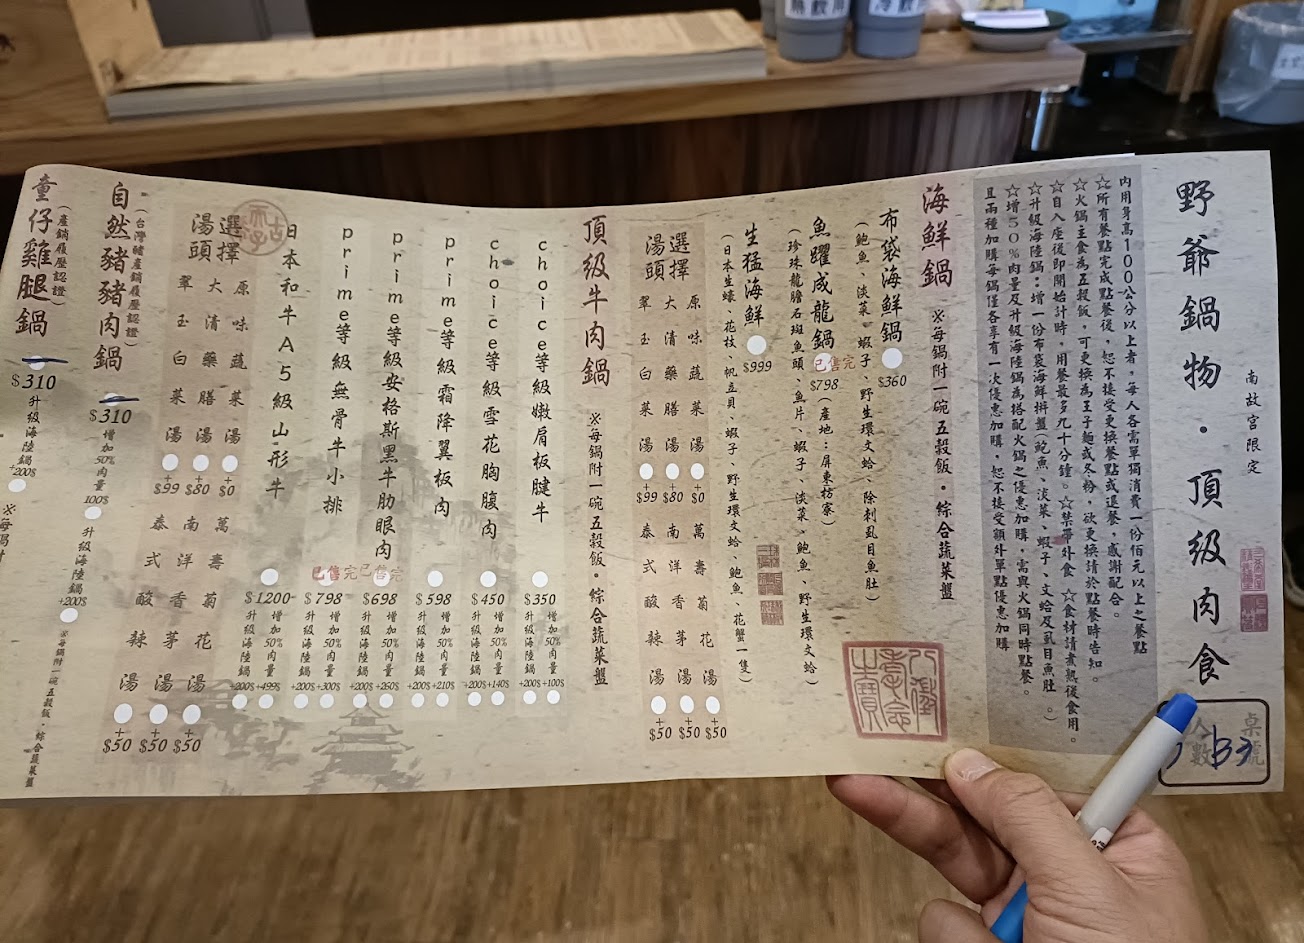 野爺鍋物·頂級肉食
南故宮限定
桌號
人數
B3
內用身高100公分以上者，每人各需單獨消費一份佰元以上之餐點
☆所有餐點完成點餐後，恕不接受更換餐點或退餐，感謝配合。
☆火鍋主食為五穀飯，可更換為王子麵或冬粉，欲更換請於點餐時告知。
☆自入座後即開始計時，用餐最多九十分鐘。☆禁帶外食 ☆食材請煮熟後食用。
☆升級海陸鍋：增一份布袋海鮮拼盤(鮑魚、淡菜、蝦子、文蛤及虱目魚肚。)
☆增50%肉量及升級海陸鍋為搭配火鍋之優惠加購，需與火鍋同時點餐。
且兩種加購每鍋僅各享有一次優惠加購，恕不接受額外單點優惠加購
海鮮鍋
※每鍋附一碗五穀飯·綜合蔬菜盤
布袋海鮮鍋
$360
(鮑魚、淡菜、蝦子、野生環文蛤、除刺虱目魚肚)
魚躍成龍鍋
已售完
$798
(產地：屏東枋寮)
(珍珠龍膽石斑魚頭、魚片、蝦子、淡菜、鮑魚、野生環文蛤)
生猛海鮮
$999
(日本生蠔、花枝、帆立貝、蝦子、野生環文蛤、鮑魚、花蟹一隻)
選擇
湯頭
原味蔬菜湯
+
$0
大清藥膳湯
+
$80
翠玉白菜湯
+
$99
萬壽菊花湯
+
$50
南洋香茅湯
+
$50
泰式酸辣湯
+
$50
頂級牛肉鍋
※每鍋附一碗五穀飯·綜合蔬菜盤
choice等級嫩肩板腱牛
$350
增加50%肉量
+100$
升級海陸鍋
+200$
choice等級雪花胸腹肉
$450
增加50%肉量
+140$
升級海陸鍋
+200$
prime等級霜降翼板肉
$598
增加50%肉量
+210$
升級海陸鍋
+200$
prime等級安格斯黑牛肋眼肉
已售完
$698
增加50%肉量
+260$
升級海陸鍋
+200$
prime等級無骨牛小排
已售完
$798
增加50%肉量
+300$
升級海陸鍋
+200$
日本和牛A5級山形牛
$1200
增加50%肉量
+499$
升級海陸鍋
+200$
選擇
湯頭
原味蔬菜湯
+
$0
大清藥膳湯
+
$80
翠玉白菜湯
+
$99
萬壽菊花湯
+
$50
南洋香茅湯
+
$50
泰式酸辣湯
+
$50
自然豬豬肉鍋
(台灣豬產銷履歷認證)
$310
增加50%肉量
100$
升級海陸鍋
+200$
※每鍋附一碗五穀飯·綜合蔬菜盤
童仔雞腿鍋
(產銷履歷認證)
$310
升級海陸鍋
+200$
※每鍋附
熱飲用
冷飲用